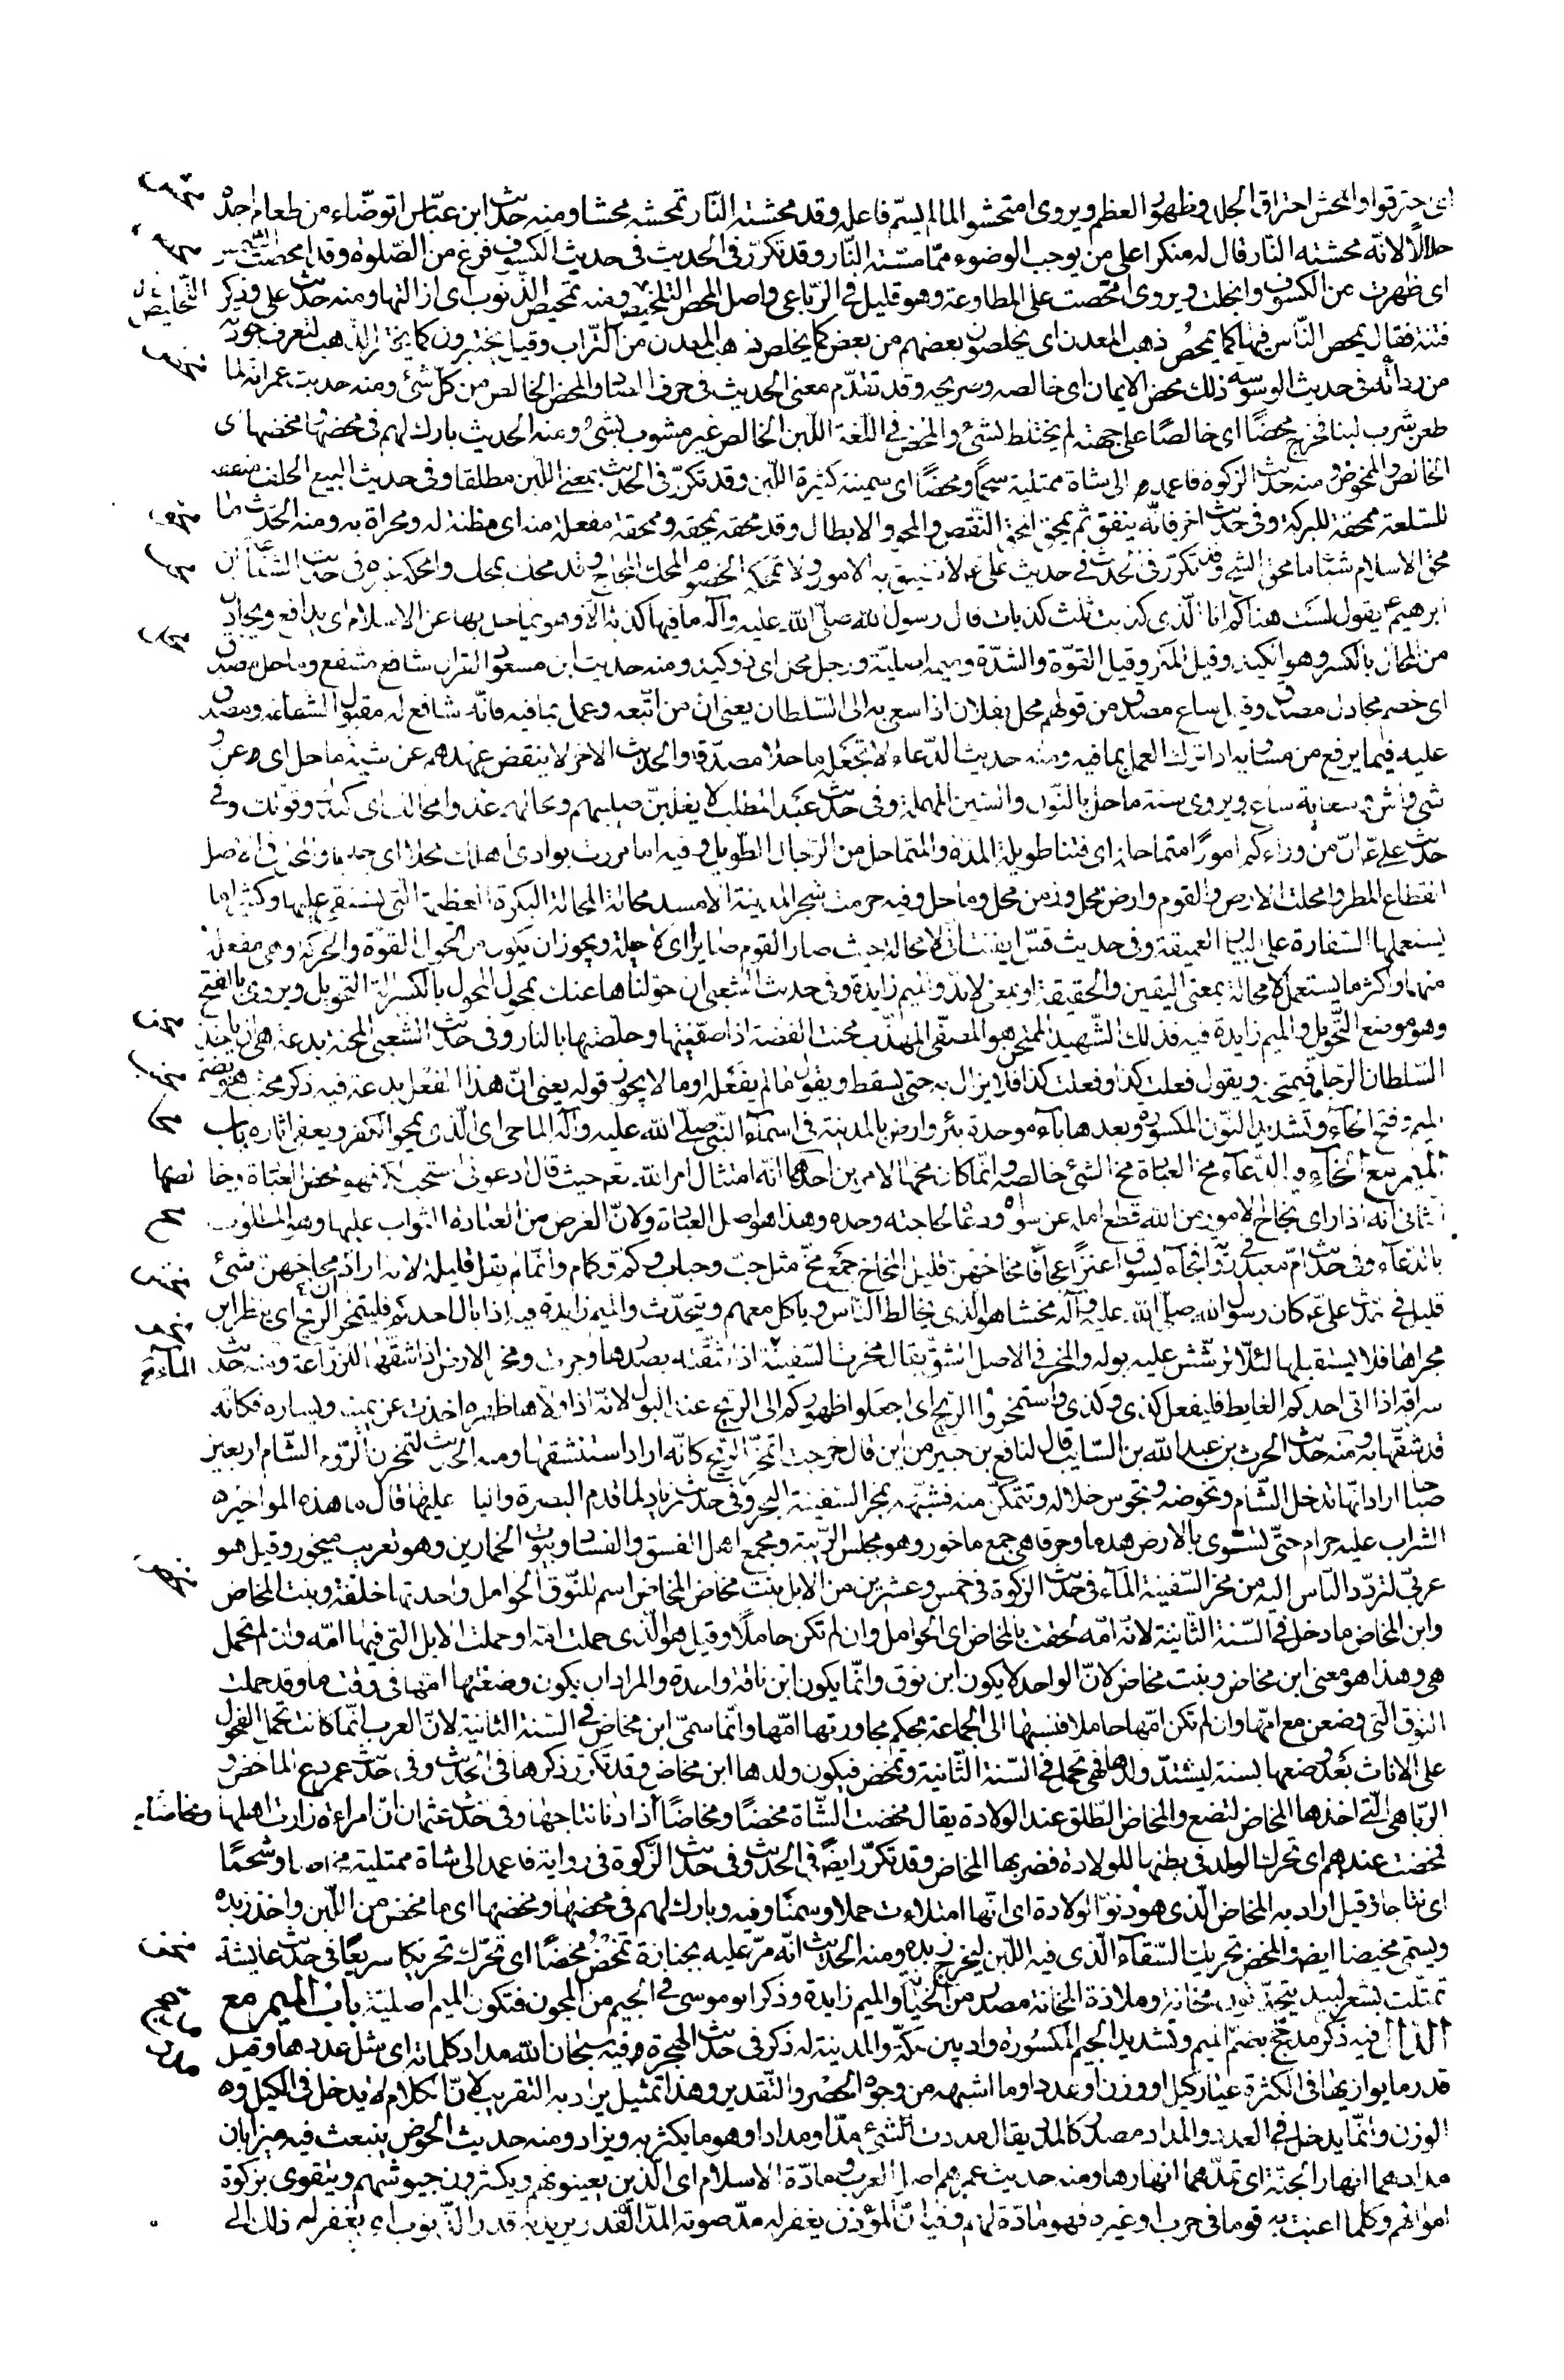 اى احترقوا والمحش احتراق الجلد وظهور العظم ويروى امتحشوا لما لم يسمّ فاعله وقد محشته النّار تمحشه محشا ومنه حديث ابن عبّاس اتوضّاء من طعام اجده
حلالًا لانّه محشته النّار قال له منكرا على من يوجب الوضوء ممّا مسّته النّار وقد تكرّر فى الحديث فى حديث الكسوف فرغ من الصّلوة وقد امحصت الشّمس
اى ظهرت من الكسوف وانجلت ويروى امّحصت على المطاوعة وهو قليل فى الرّباعى واصل المحص التخليص ومنه تمحيص الذّنوب اى ازالتها ومنه حديث على وذكر
فتنة فقال يمحص النّاس فيها كما يمحص ذهب المعدن اى يخلصون بعضهم من بعض كما يخلص ذهب المعدن من التّراب وقيل يختبرون كما يختبر الذهب لتعرف جودته
من ردائته فى حديث الوسوسه ذلك محض الايمان اى خالصه وصريحه وقد تقدّم معنى الحديث فى حرف الصاد والمحض الخالص من كلّ شئ ومنه حديث عمر انه لما
طعن شرب لبنا فخرج محضًا اى خالصًا على جهته لم يختلط بشئ والمحض فى اللّغة اللّبن الخالص غير مشوب بشئ ومنه الحديث بارك لهم فى محضها ومخضها اى
الخالص والمخوض ومنه حديث الزكوة فاعمد الى شاة ممتلية شحمًا ومحضًا اى سمينة كثيرة اللّبن وقد تكرّر فى الحديث بمعنى اللّبن مطلقا وفى حديث البيع الحلف منفقة
للسّلعة ممحقة للبركة وفى حديث اخر فانّه ينفق ثم يمحق المحق النّقص والمحو والابطال وقد محقه يمحقه وممحقة مفعلة منه اى مظنة له ومحراة به ومنه الحديث ما
محق الاسلام شئ ما محق الشح وقد تكرّر فى الحديث فى حديث على لا تضيق به الامور ولا تمحكه الخصوم المحك اللجاج وقد محك يمحك وامحكه غيره فى حديث الشفاعة ان
ابرهيم يقول لست هناكم انا الّذى كذبت ثلث كذبات قال رسول الله صلّى الله عليه وآله ما فيها كذبة الّا وهو يماحل بها عن الاسلام اى يدافع ويجادل
من المحال بالكسر وهو الكيد وقيل المكر وقيل القوّة والشدّة وميمه اصليّة ورجل محل اى ذو كيد ومنه حديث ابن مسعود القران شافع مشفع وماحل مصدق
اى خصم مجادل مصدق وقيل ساع مصدق من قولهم محل بفلان اذا سعى به الى السّلطان يعنى ان من اتّبعه وعمل بما فيه فانّه شافع له مقبول الشفاعة ومصدق
عليه فيما يرفع من مساويه اذا ترك العمل بما فيه ومنه حديث الدّعاء لا تجعله ماحلا مصدّقا والحديث الاخر لا ينقض عهدهم عن شية ماحل اى عن
شى واش وسعاية ساع ويروى سنة ماحل بالنّون والسين المهملة وفى حديث عبد المطلب لا يغلبنّ صليبهم ومحالهم غدوا محالك اى كيدك وقوّتك وفى
حديث على انّ من ورائكم امورًا متماحلة اى فتنا طويلة المدّة والمتماحل من الرّجال الطّويل وفيه اما مررت بوادى اهلك محلا اى جدبا والمحل فى الاصل
انقطاع المطر وامحلت الارض والقوم وارض محل وزمن محل وماحل وفيه حرمت شجر المدينة الا مسد محالة المحالة البكرة العظيمة الّتى يستقى عليها وكثيرا ما
يستعملها السّفارة على البيار العميقة وفى حديث قسّ ايقنت انى لا محالة حيث صار القوم صاير اى لا حيلة ويجوز ان يكون من الحول القوّة والحركة وهى مفعلة
منهما واكثر ما يستعمل لا محالة بمعنى اليقين والحقيقة او بمعنى لابدّ والميم زايدة وفى حديث الشعبى ان حوّلناها عنك بمحول المحول بالكسر الة التحويل ويروى بالفتح
وهو موضع التّحويل والميم زايدة فيه فذلك الشّهيد الممتحن هو المصفّى المهذّب محنت الفضة اذا صفّيتها وخلصتها بالنار وفى حديث الشعبى المحنة بدعة هى ان ياخذ
السّلطان الرّجل فيمتحنه ويقول فعلت كذا وفعلت كذا فلا يزال به حتى يسقط ويقول ما لم يفعله او ما لا يجوز قوله يعنى انّ هذا الفعل بدعة فيه ذكر محنب هو بضمّ
الميم وفتح الحآء وتشديد النّون المكسورة وبعدها باء موحدة بئر وارض بالمدينة فى اسمآء النّبى صلّى الله عليه وآله الماحى اى الّذى يمحو الكفر ويعفى اثاره باب
الميم مع الخآء فيه الدّعآء مخ العبادة مخ الشئ خالصه وانّما كان مخها لامرين احدهما انّه امتثال امر الله تعم حيث قال ادعونى استجب لكم فهو محض العبادة وخا لصها
الثانى انه اذا راى نجاح الامور من الله قطع امله عن سواه ودعاه لحاجته وحده وهذا هو اصل العبادة ولانّ الغرض من العبادة الثواب عليها وهو المطلوب
بالدعآء وفى حديث امّ معبد فى رواية فجاء يسوق اعنزًا عجافًا مخاخهن قليل المخاخ جمع مخّ مثل حبّ وحباب وكمّ وكمام وانّما لم يقل قليلة لانه اراد ان مخاخهن شئ
قليل فى حديث علىّ كان رسول الله صلى الله عليه وآله مخشا هو الّذى يخالط النّاس وياكل معهم ويتحدّث والميم زايدة فيه اذا بال احدكم فليتمخر الريح اى ينظر اين
مجراها فلا يستقبلها لئلّا ترشّش عليه بوله والمخر فى الاصل الشقّ يقال مخرت السّفينة الماء اذا شقّته بصدرها وجرت ومخر الارض اذا شقّها للزّراعة ومنه حديث
سراقه اذا اتى احدكم الغايط فليفعل كذى وكذى واستمخروا الريح اى اجعلوا ظهوركم الى الريح عند البول لانّه اذا ولاها ظهره اخذت عن يمينه ويساره فكانّه
قد شقّها به ومنه حديث الحرث بن عبد الله بن السّايب قال لنافع بن جبير من اين قال خرجت اتمخّر الريح كانّه اراد استنشقها ومنه الحديث لتمخرنّ الرّوم الشّام اربعين
صباحا اراد انّها تدخل الشّام وتخوضه وتجوس خلاله وتتمكّن منه فشبّهه بمخر السّفينة البحر وفى حديث زياد لما قدم البصرة واليا عليها قال ما هذه المواخير
الشراب عليه حرام حتّى تسوّى بالارض هدما وحرقا هى جمع ماخور وهو مجلس الرّيبة ومجمع اهل الفسق والفساد وبيوت الخمارين وهو تعريب ميخور وقيل هو
عربىّ لتردّد النّاس اليه من مخر السّفينة المآء فى حديث الزكوة فى خمس وعشرين من الابل بنت مخاض المخاض اسم للنّوق الحوامل واحدتها خلفة وبنت المخاض
وابن المخاض ما دخل فى السّنة الثّانية لانّ امّه لحقت بالمخاض اى الحوامل وان لم تكن حاملًا وقيل هو الّذى حملت امّه او حملت الابل الّتى فيها امّه وان لم تحمل
هى وهذا هو معنى ابن مخاض وبنت مخاض لانّ الواحد لا يكون ابن نوق وانّما يكون ابن ناقة واحدة والمراد ان يكون وضعتها امّها فى وقت ما وقد حملت
النّوق الّتى وضعن مع امّها وان لم تكن امّها حاملا فنسبها الى الجماعة بحكم مجاورتها امّها وانّما سمّى ابن مخاض فى السّنة الثانية لانّ العرب انّما كانت تحمل الفحول
على الاناث بعد وضعها بسنة ليشتدّ ولدها فهى تحمل فى السّنة الثّانية وتمخض فيكون ولدها ابن مخاض وقد تكرّر ذكرها فى الحديث وفى حديث عمر دع الماخض و
الربّا هى الّتى اخذها المخاض لتضع والمخاض الطّلق عند الولادة يقال مخضت الشّاة مخضًا ومخاضًا اذا دنا نتاجها وفى حديث عثمان انّ امراءة زارت اهلها
فمخضت عندهم اى تحرك الولد فى بطنها للولادة فضربها المخاض وقد تكرّر ايضًا فى الحديث وفى حديث الزّكوة فى رواية فاعمد الى شاة ممتلية مخاضا وشحمًا
اى نتاجا وقيل اراد به المخاض الّذى هو دنوّ الولادة اى انّها امتلاءت حملا وسمنًا وفيه وبارك لهم فى محضها ومخضها اى ما مخض من اللّبن واخذ زبده
ويسمّى مخيضا ايض والمخض تحريك السّقآء الّذى فيه اللّبن ليخرج زبده ومنه الحديث انّه مرّ عليه بجنازة تمخض مخضًا اى تحرّك تحريكا سريعًا فى حديث عايشة
تمثّلت بشعر لبيد يتحدّثون مخانة وملاذة المخانة مصدر من الخيانة والميم زايدة وذكر ابو موسى فى الجيم من المجون فتكون الميم اصليّة باب الميم مع
الدال فيه ذكر مدجّج بضمّ الميم وتشديد الجيم المكسورة واد بين مكّة والمدينة له ذكر فى حديث الهجرة فيه سبحان الله مداد كلماته اى مثل عددها وقيل
قدر ما يوازيها فى الكثرة عيار كيل او وزن او عدد او ما اشبهه من وجوه الحصر والتّقدير وهذا تمثيل يراد به التقريب لانّ الكلام لا يدخل فى الكيل و
الوزن وانّما يدخل فى العدد والمداد مصدر كالمدّ يقال مددت الشئ مدّا ومدادا وهو ما يكثر به ويزاد ومنه حديث الحوض ينبعث فيه ميزابان
مدادهما انهار الجنّة اى تمدّهما انهارها ومنه حديث عمر هم اصل العرب ومادّة الاسلام اى الّذين يعينونهم ويكثرون جيوشهم ويتقوى بزكوة
اموالهم وكلما اعنت به قوما فى حرب او غيره فهو مادّة لهم وفيه انّ المؤذن يغفر له مدّ صوته المدّ القدر يريد به قدر الذّنوب اى يغفر له ذلك الى